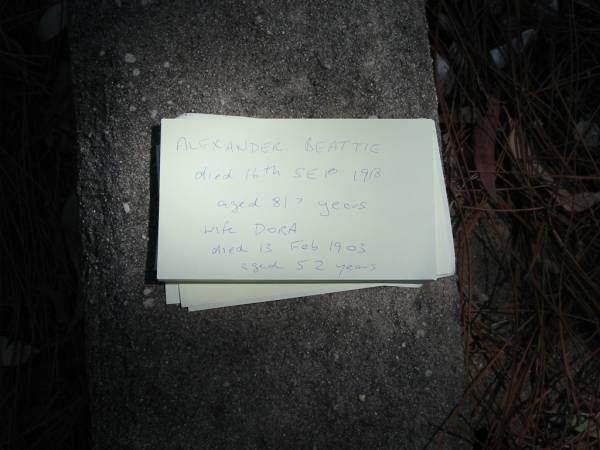 ALEXANDER BEATTIE
died 16th SEP 1913
aged 81? years
wife DORA
died 13 Feb 1903
aged 52 years